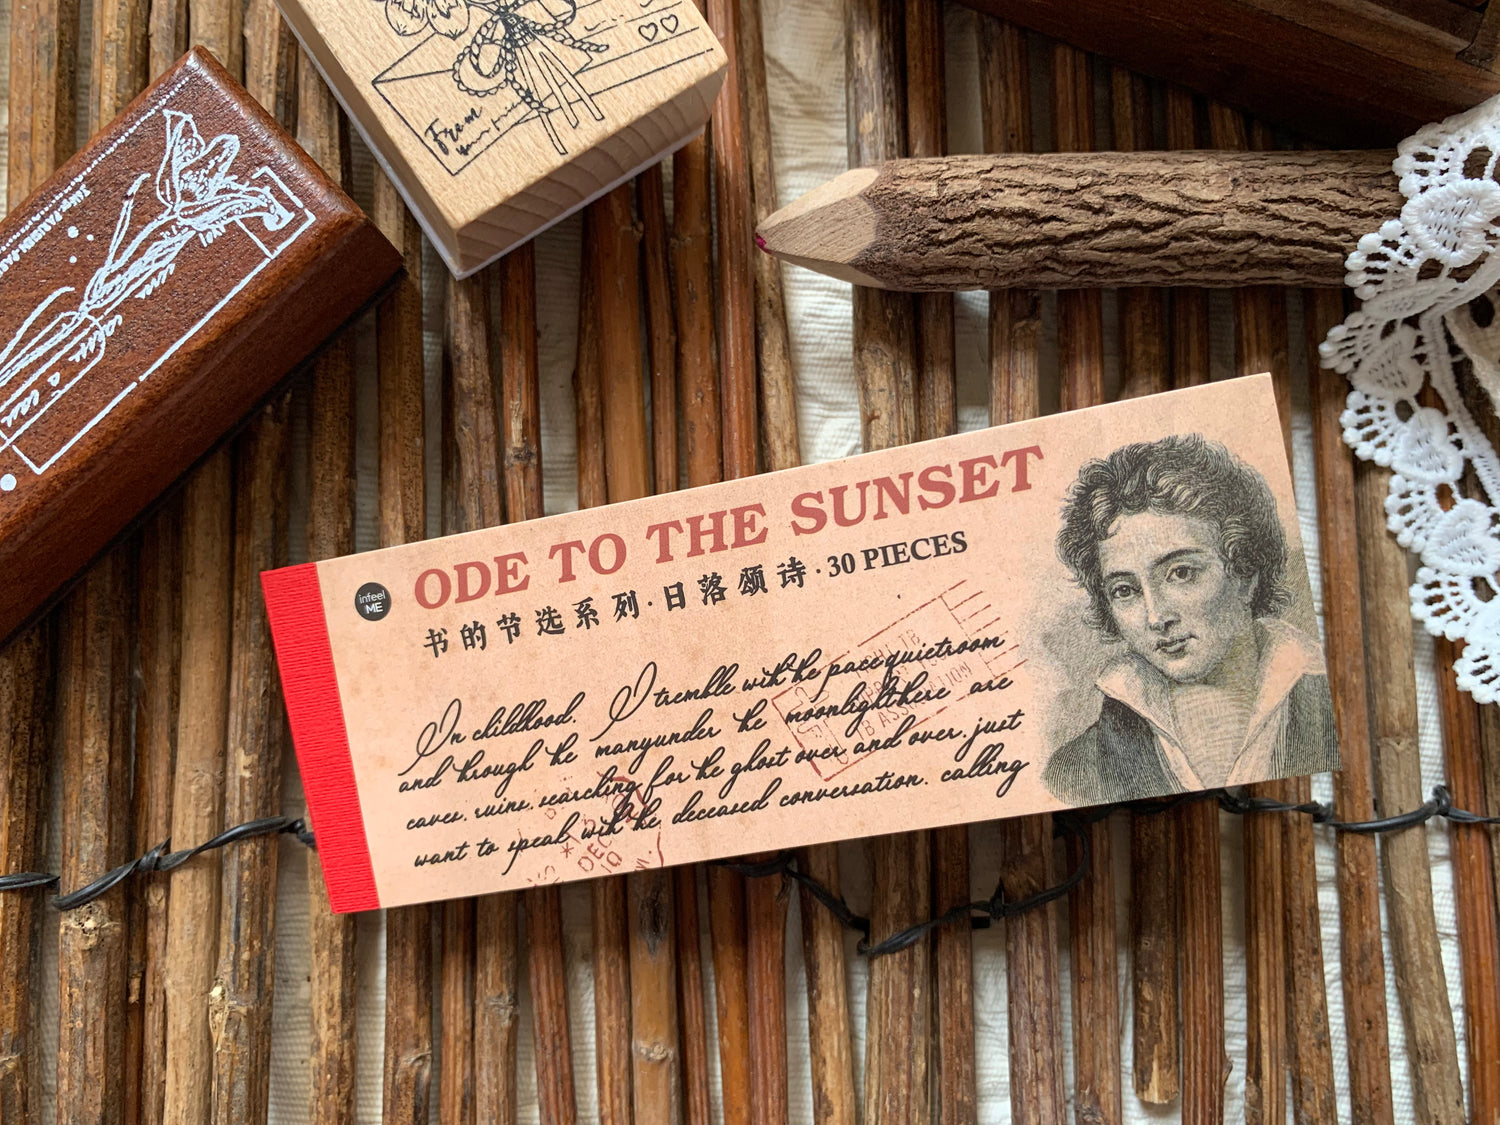 From
infeel
ME
ODE TO THE SUNSET
书的节选系列·日落颂诗·30 PIECES
In childhood. I tremble with he pace quietroom
and hrough he manyunder he moonlighthere are
caves. ruins. searching for he ghost over and over. just
want to speak with he deceased conversation. calling
DEC
10